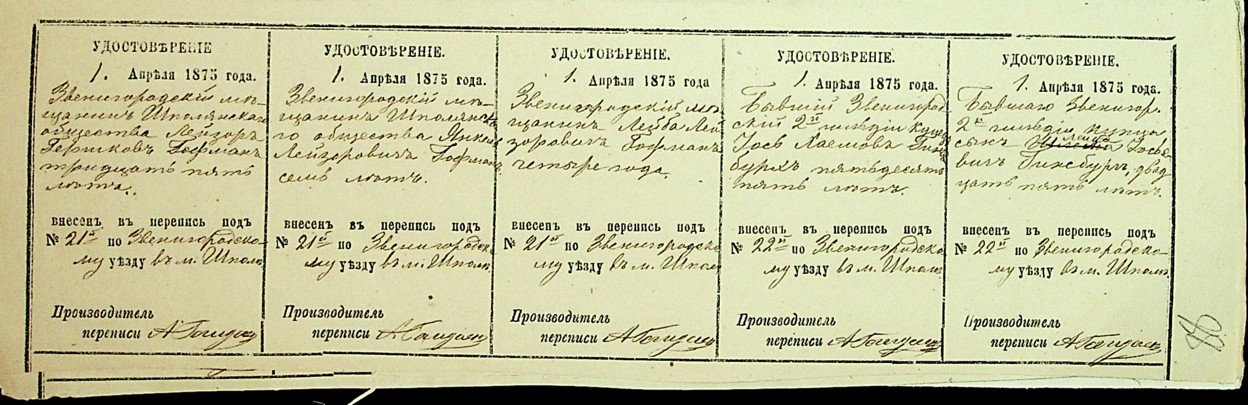 УДОСТОВѢРЕНІЕ
1. Апрѣля 1875 года.
Звенигородскій мѣ-
щанинъ Шполянскаго
общества Лейзоръ
Гершковъ Гофманъ
тридцать пять
лѣтъ.
внесенъ въ перепись подъ
№ 21й по Звенигородско-
му уѣзду въ м. Шполѣ
Производитель
переписи
УДОСТОВѢРЕНІЕ.
1. Апрѣля 1875 года.
Звенигородскій мѣ-
щанинъ Шполянска-
го общества Янкель
Лейзоровичъ Гофманъ
семь лѣтъ.
внесенъ въ перепись подъ
№ 21й по Звенигородско-
му уѣзду въ м. Шполѣ
Производитель
переписи
УДОСТОВѢРЕНІЕ.
1. Апрѣля 1875 года
Звенигородскій мѣ-
щанинъ Лейба Лей
зоровичъ Гофманъ
четыре года.
внесенъ въ перепись подъ
№ 21й по Звенигородско
му уѣзду въ м. Шполѣ
Производитель
переписи
УДОСТОВѢРЕНІЕ.
1. Апрѣля 1875 года.
Бывшій Звенигород
скій 2й гильдіи купецъ
Іось Гинс
бургъ пятьдесятъ
пять лѣтъ.
внесенъ въ перепись подъ
№ 22й по Звенигородско
му уѣзду въ м. Шполѣ
Производитель
переписи
УДОСТОВѢРЕНІЕ.
1. Апрѣля 1875 года.
Бывшаго Звенигор.
2й гильдіи купца
сынъ Іосе-
вичъ Гинсбургъ, двад
цать пять лѣтъ.
внесенъ въ перепись подъ
№ 22й по Звенигородско-
му уѣзду въ м. Шполѣ
Производитель
переписи